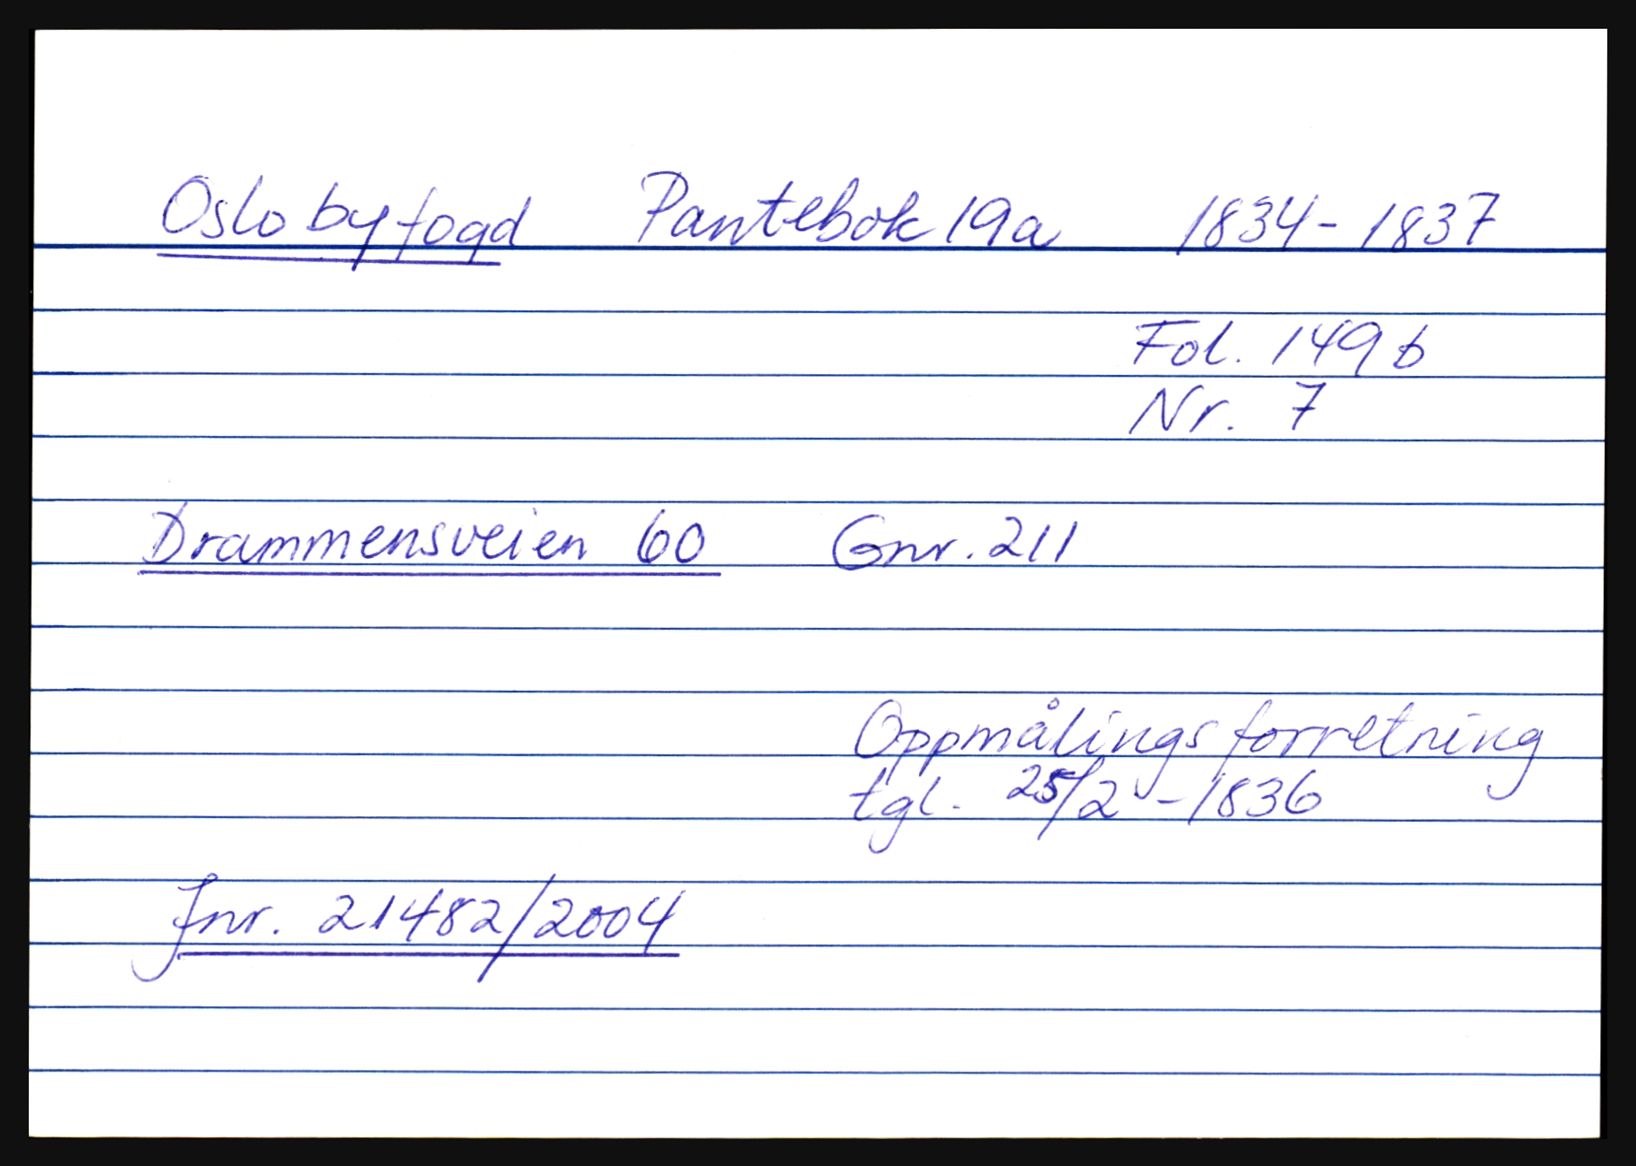 Oslo byfogd Pantebok 19a 1834-1837
Fol. 149b
Nr. 7
Drammensveien 60 Gnr. 211
Oppmålingsforretning
tgl. 25/2 - 1836
Jnr. 21482/2004